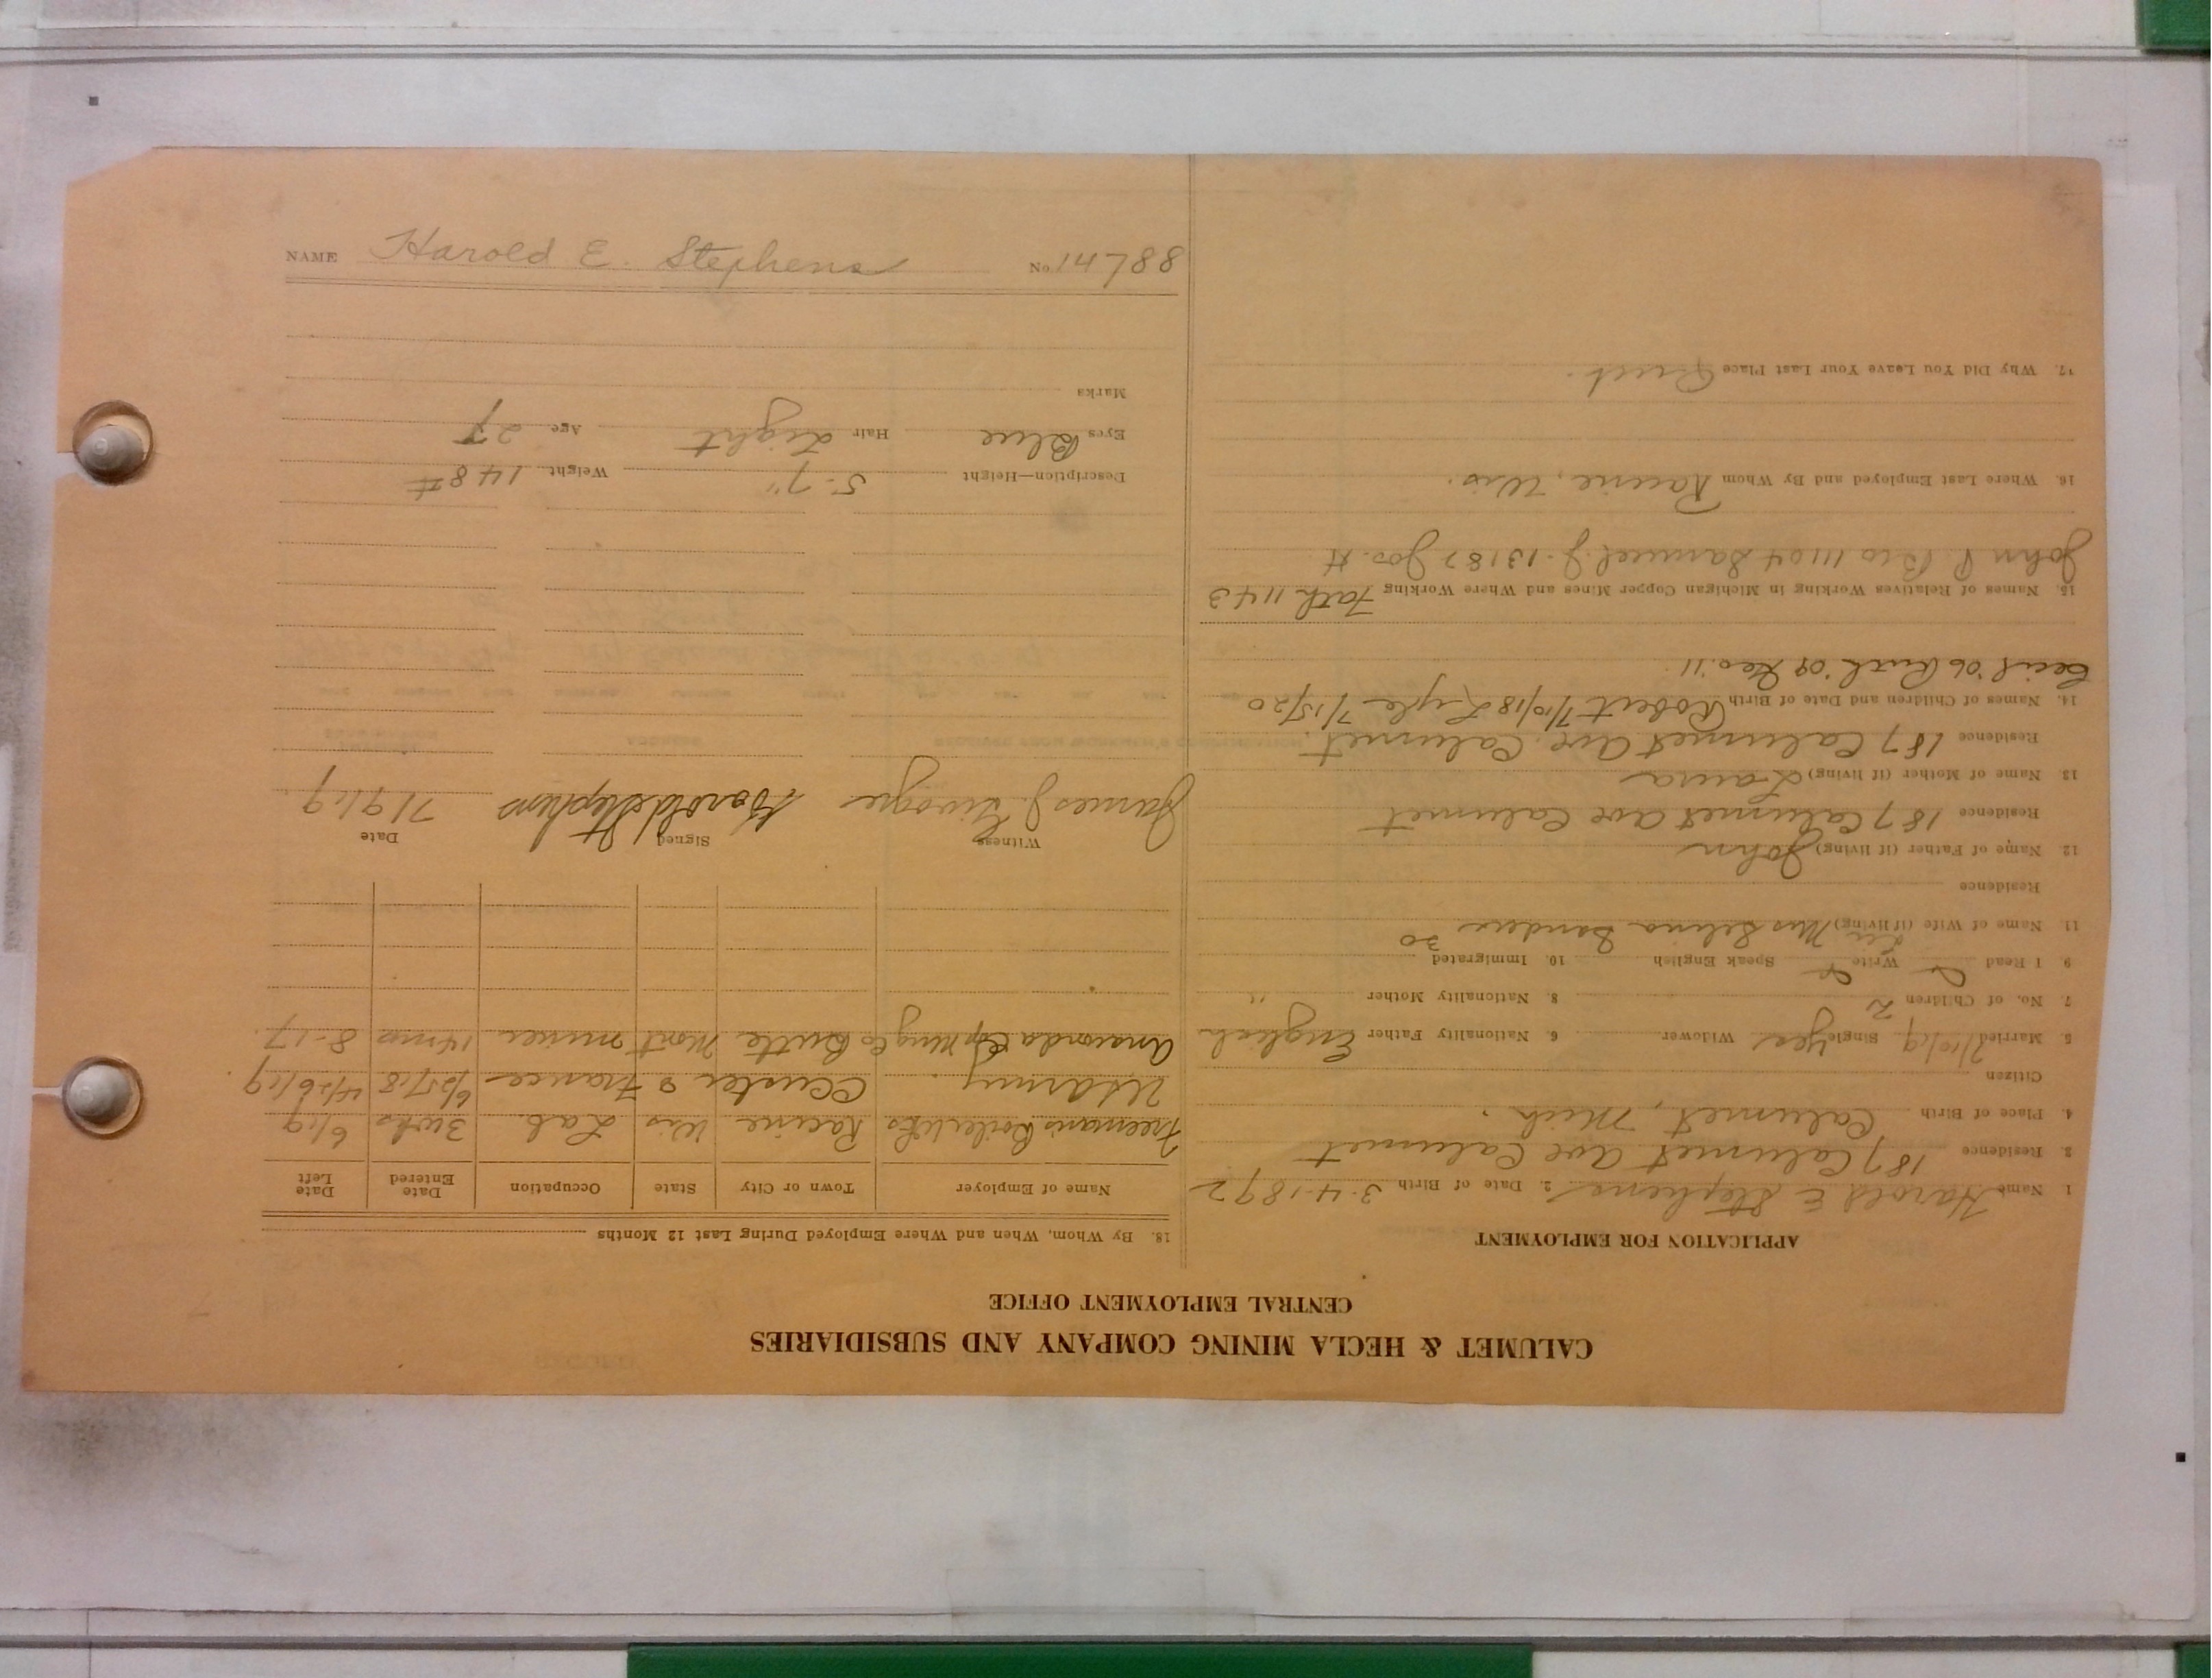 NAME Harold E. Stephens No. 14788
CALUMET & HECLA MINING COMPANY AND SUBSIDIARIES
CENTRAL EMPLOYMENT OFFICE
APPLICATION FOR EMPLOYMENT
1 Name Harold E Stephens 2. Date of Birth 3-4-1892
3. Residence 187 Calumet Ave Calumet
4. Place of Birth Calumet, Mich.
Citizen
5 Married 7/10/19 Single Yes Widower 6. Nationality Father English
7. No. of Children 2 8. Nationality Mother "
9. I Read Write Speak English 10. Immigrated
11. Name of Wife (if living) Mrs Selina 30
Residence
12. Name of Father (if living) John
Residence 187 Calumet Ave Calumet
13 Name of Mother (if living) Laura
Residence 187 Calumet Ave. Calumet.
14. Names of Children and Date of Birth Robert 7/10/18 Lyle 7/15/20
Cecil '06 Ruth '09 Geo. '11
15. Names of Relatives Working in Michigan Copper Mines and Where Working Fath 1143
John P. Bro 11104 Samuel J. 13187 Jos. H
16. Where Last Employed and By Whom Racine, Wis.
17. Why Did You Leave Your Last Place Quit.
18. By Whom, When and Where Employed During Last 12 Months
Name of Employer Town or City State Occupation Date Entered Date Left
Freeman's Boiler Wks Racine Wis Lab. 3 wks 6/19
US Army. Custer & France 6/25/18 4/26/19
Anaconda Cp Mng Co Butte Mont miner 14 mos 8-17.
Witness Signed Date
James J. Harold Stephens 7/9/19
Description—Height 5-7" Weight 148#
Eyes Blue Hair Light Age 27
Marks